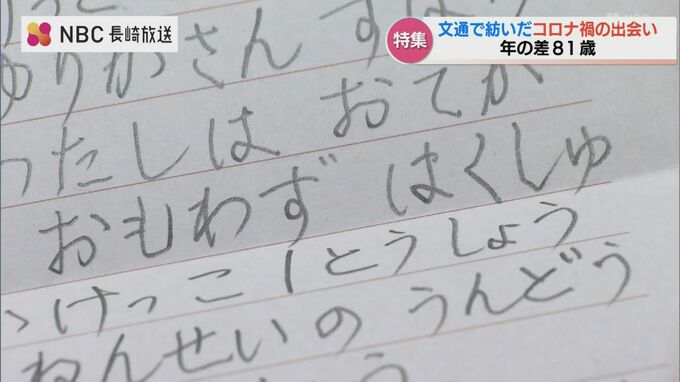 NBC 長崎放送
特集
文通で紡いだコロナ禍の出会い
年の差81歳
ゆりかさん
わたしは おてが
おもわず はくしゅ
かけっこ1とうしょう
ねんせいの うんどう